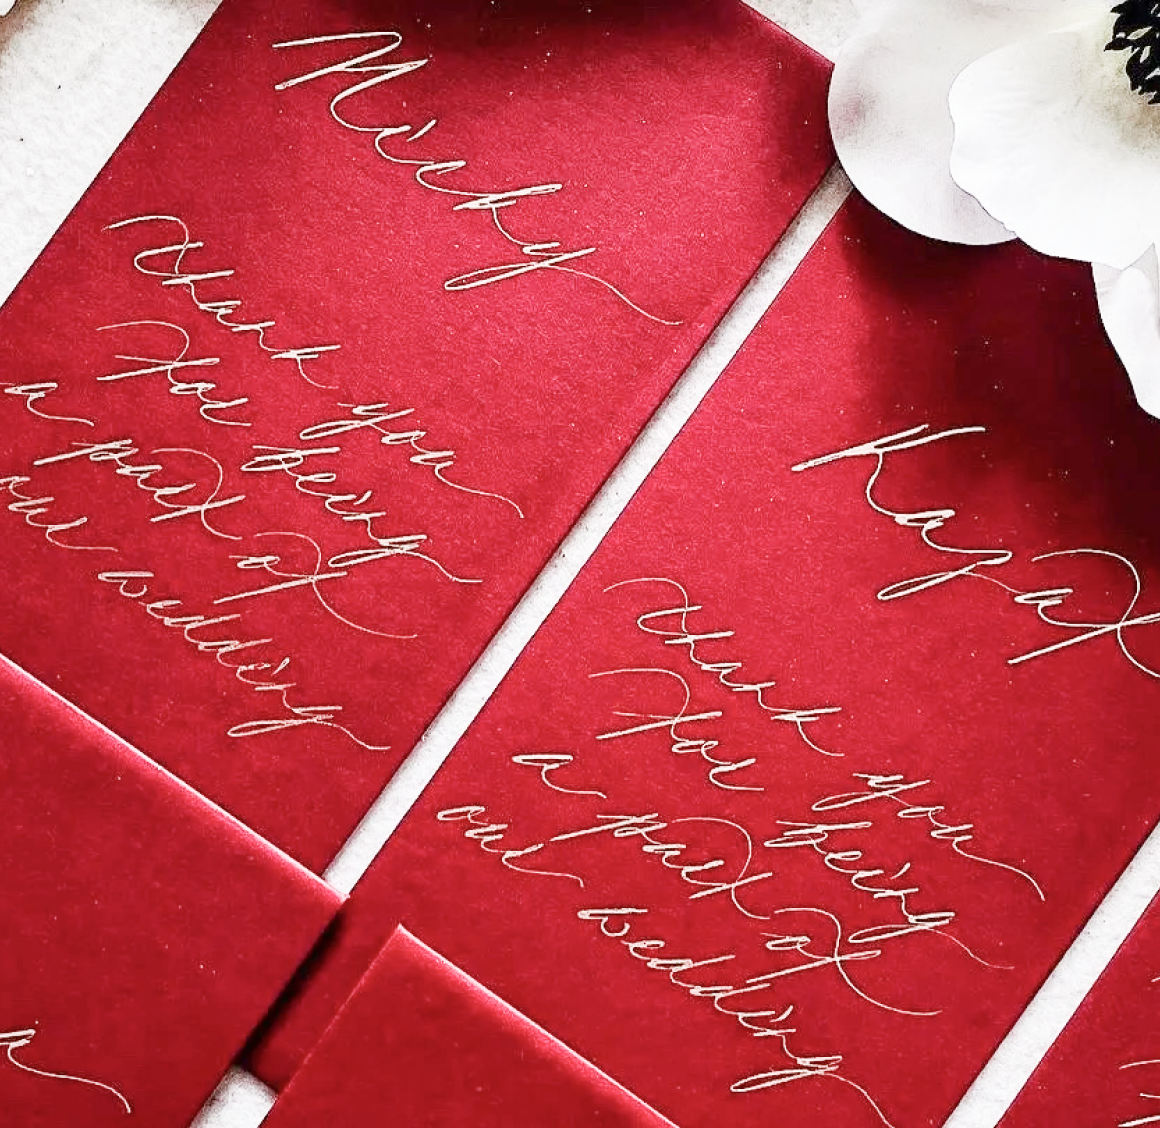 Nicky
Thank you
for being
a part of
our wedding
Kayat
Thank you
for being
a part of
our wedding
a